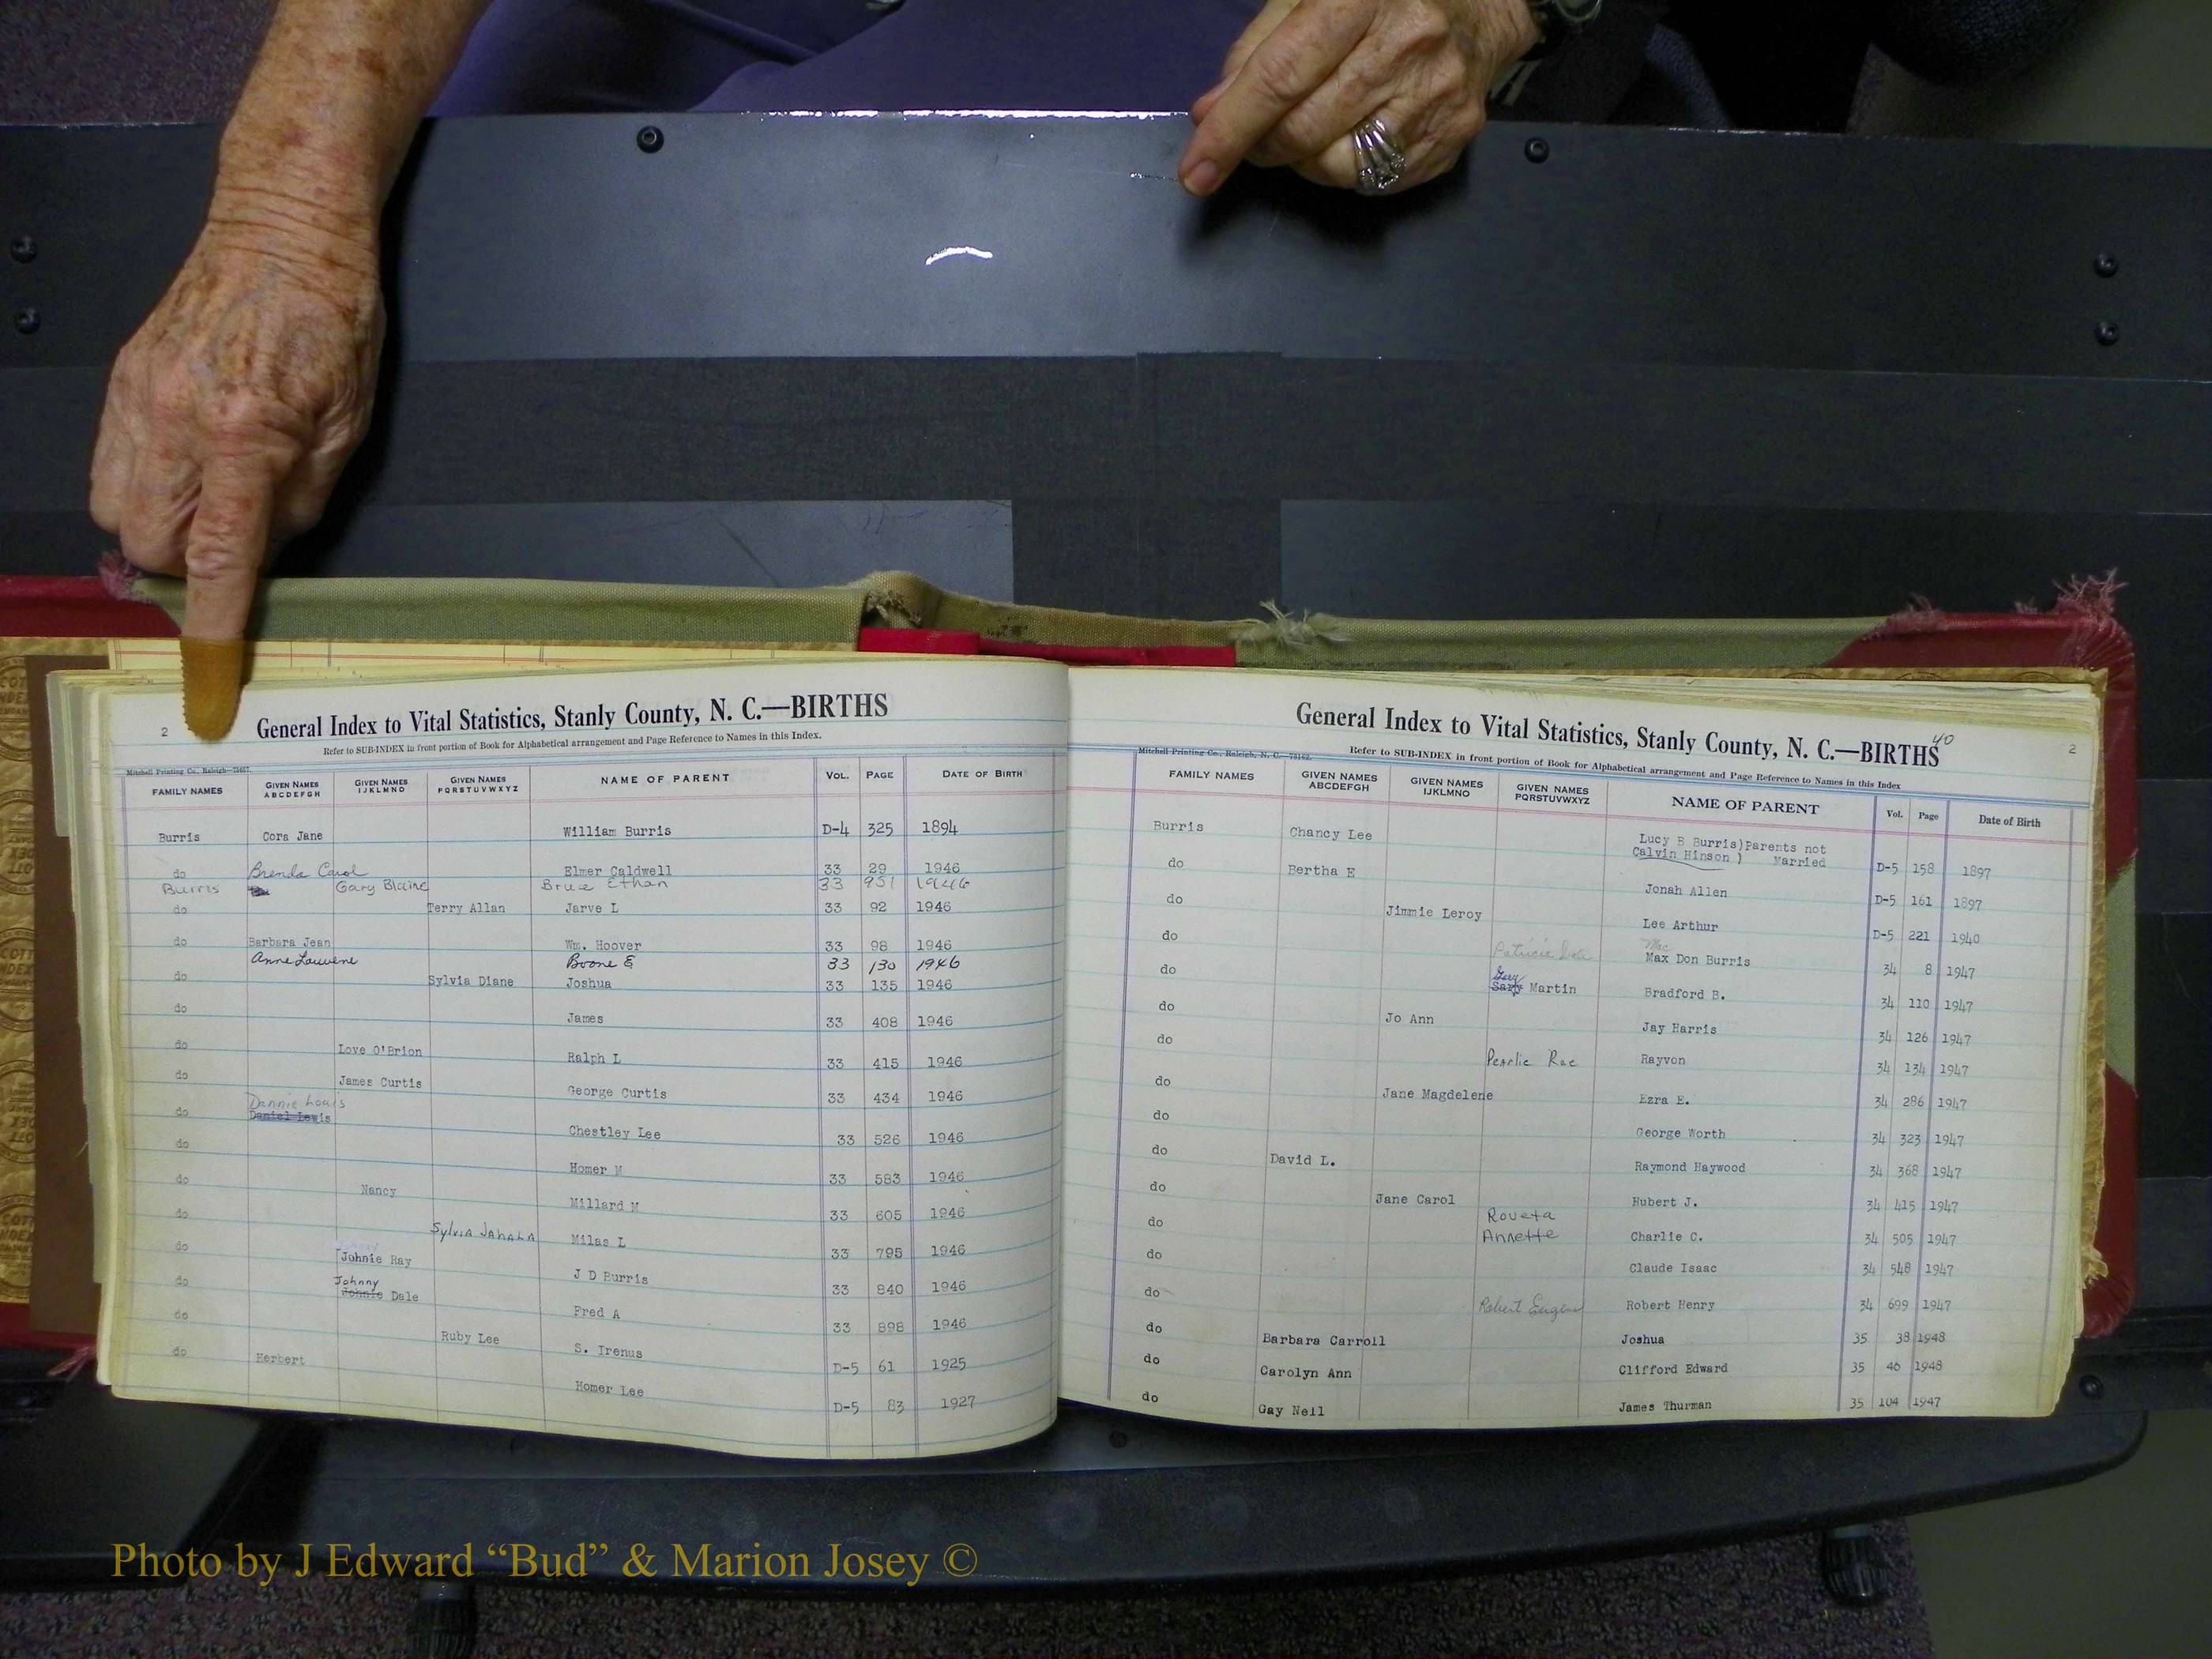 2
General Index to Vital Statistics, Stanly County, N. C.—BIRTHS
Refer to SUB-INDEX in front portion of Book for Alphabetical arrangement and Page Reference to Names in this Index.
Mitchell Printing Co., Raleigh
FAMILY NAMES GIVEN NAMES ABCDEFGH GIVEN NAMES IJKLMNO GIVEN NAMES PQRSTUVWXYZ NAME OF PARENT VOL. PAGE DATE OF BIRTH
Burris Cora Jane William Burris D-4 325 1894
do Brenda Carol Elmer Caldwell 33 29 1946
Burris Gary Blaine Bruce Ethan 33 951 1946
do Terry Allan Jarve L 33 92 1946
do Barbara Jean Wm. Hoover 33 98 1946
Anne Louvene Boone E 33 130 1946
do Sylvia Diane Joshua 33 135 1946
do James 33 408 1946
do Love O'Brion Ralph L 33 415 1946
do James Curtis George Curtis 33 434 1946
Dannie Louis
do Daniel Lewis Chestley Lee 33 526 1946
do Homer M 33 583 1946
do Nancy Millard M 33 605 1946
do Sylvia Jahala Milas L 33 795 1946
do Johnie Ray J D Burris 33 840 1946
Johnny
do Johnie Dale Fred A 33 898 1946
do Ruby Lee S. Irenus D-5 61 1925
do Herbert Homer Lee D-5 83 1927
40
2
General Index to Vital Statistics, Stanly County, N. C.—BIRTHS
Refer to SUB-INDEX in front portion of Book for Alphabetical arrangement and Page Reference to Names in this Index
Mitchell Printing Co., Raleigh, N. C.
FAMILY NAMES GIVEN NAMES ABCDEFGH GIVEN NAMES IJKLMNO GIVEN NAMES PQRSTUVWXYZ NAME OF PARENT Vol. Page Date of Birth
Burris Chancy Lee Lucy B Burris)Parents not
Calvin Hinson ) Married D-5 158 1897
do Bertha E Jonah Allen D-5 161 1897
do Jimmie Leroy Lee Arthur D-5 221 1940
Mac
do Patricia Max Don Burris 34 8 1947
Gary
do Martin Bradford B. 34 110 1947
do Jo Ann Jay Harris 34 126 1947
do Pearlie Rae Rayvon 34 134 1947
do Jane Magdelene Ezra E. 34 286 1947
do George Worth 34 323 1947
do David L. Raymond Haywood 34 368 1947
do Jane Carol Hubert J. 34 415 1947
do Roveta Annette Charlie C. 34 505 1947
do Claude Isaac 34 548 1947
do Robert Eugene Robert Henry 34 699 1947
do Barbara Carroll Joshua 35 38 1948
do Carolyn Ann Clifford Edward 35 40 1948
do Gay Neil James Thurman 35 104 1947
Photo by J Edward “Bud” & Marion Josey ©